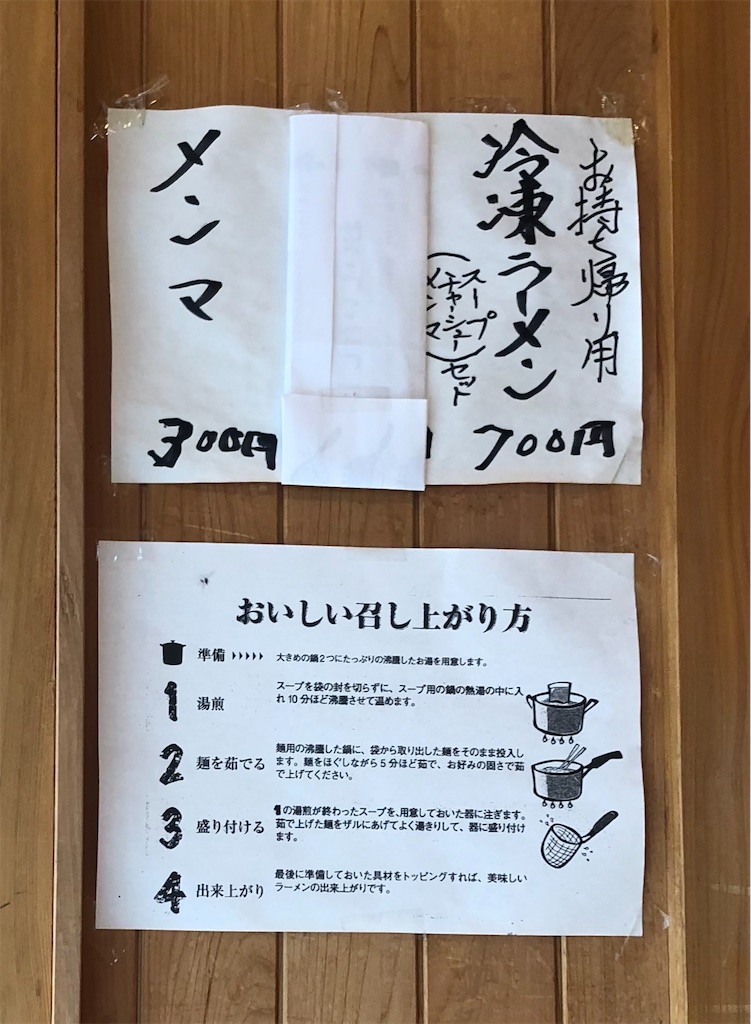 お持ち帰り用
冷凍ラーメン
(スープ
チャーシュー
メンマ)セット
700円
メンマ
300円
おいしい召し上がり方
準備
大きめの鍋2つにたっぷりの沸騰したお湯を用意します。
1 湯煎
スープを袋の封を切らずに、スープ用の鍋の熱湯の中に入
れ10分ほど沸騰させて温めます。
2 麺を茹でる
麺用の沸騰した鍋に、袋から取り出した麺をそのまま投入し
ます。麺をほぐしながら5分ほど茹で、お好みの固さで茹
で上げてください。
3 盛り付ける
1の湯煎が終わったスープを、用意しておいた器に注ぎます。
茹で上げた麺をザルにあげてよく湯きりして、器に盛り付け
ます。
4 出来上がり
最後に準備しておいた具材をトッピングすれば、美味しい
ラーメンの出来上がりです。